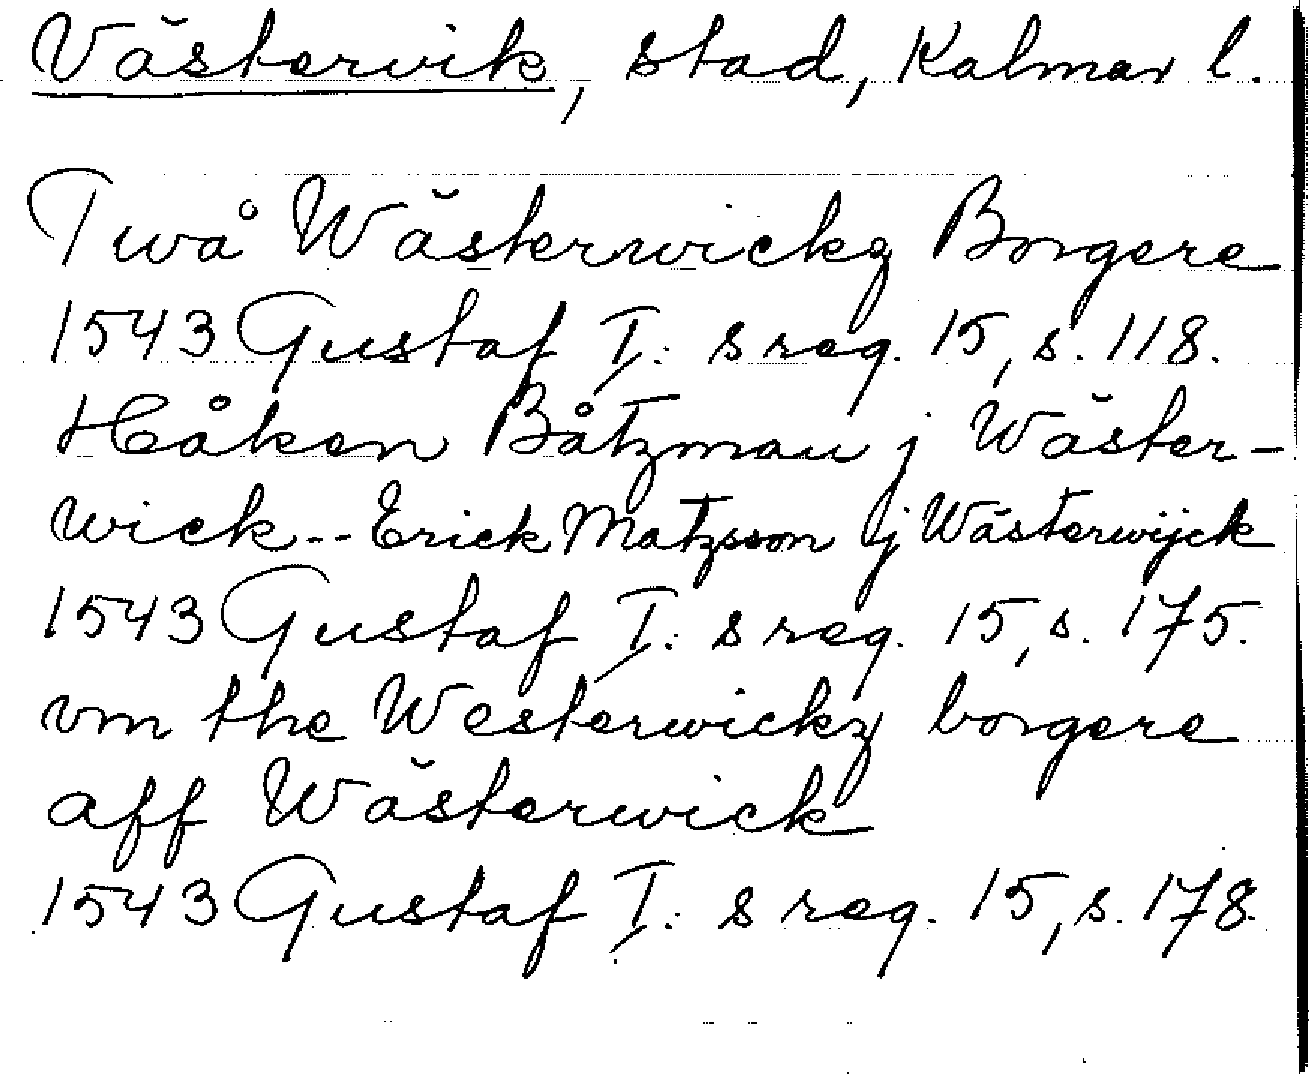 Västervik, stad, Kalmar l.
Twå Wästerwickz Borgere
1543 Gustaf I: s reg. 15, s. 118.
Håken Båtzman j Wäster-
wick -- Erick Matzsson j Wästerwijck
1543 Gustaf I: s reg. 15, s. 175.
vm the Westerwickz borgere
aff Wästerwick
1543 Gustaf I: s reg. 15, s. 178.